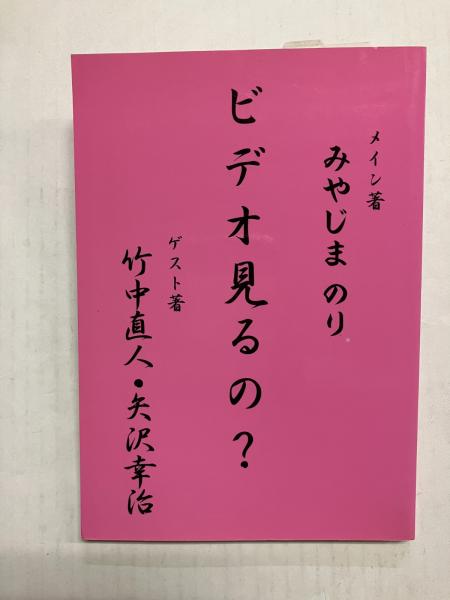 メイン著
みやじまのり。
ビデオ見るの?
ゲスト著
竹中直人・矢沢幸治